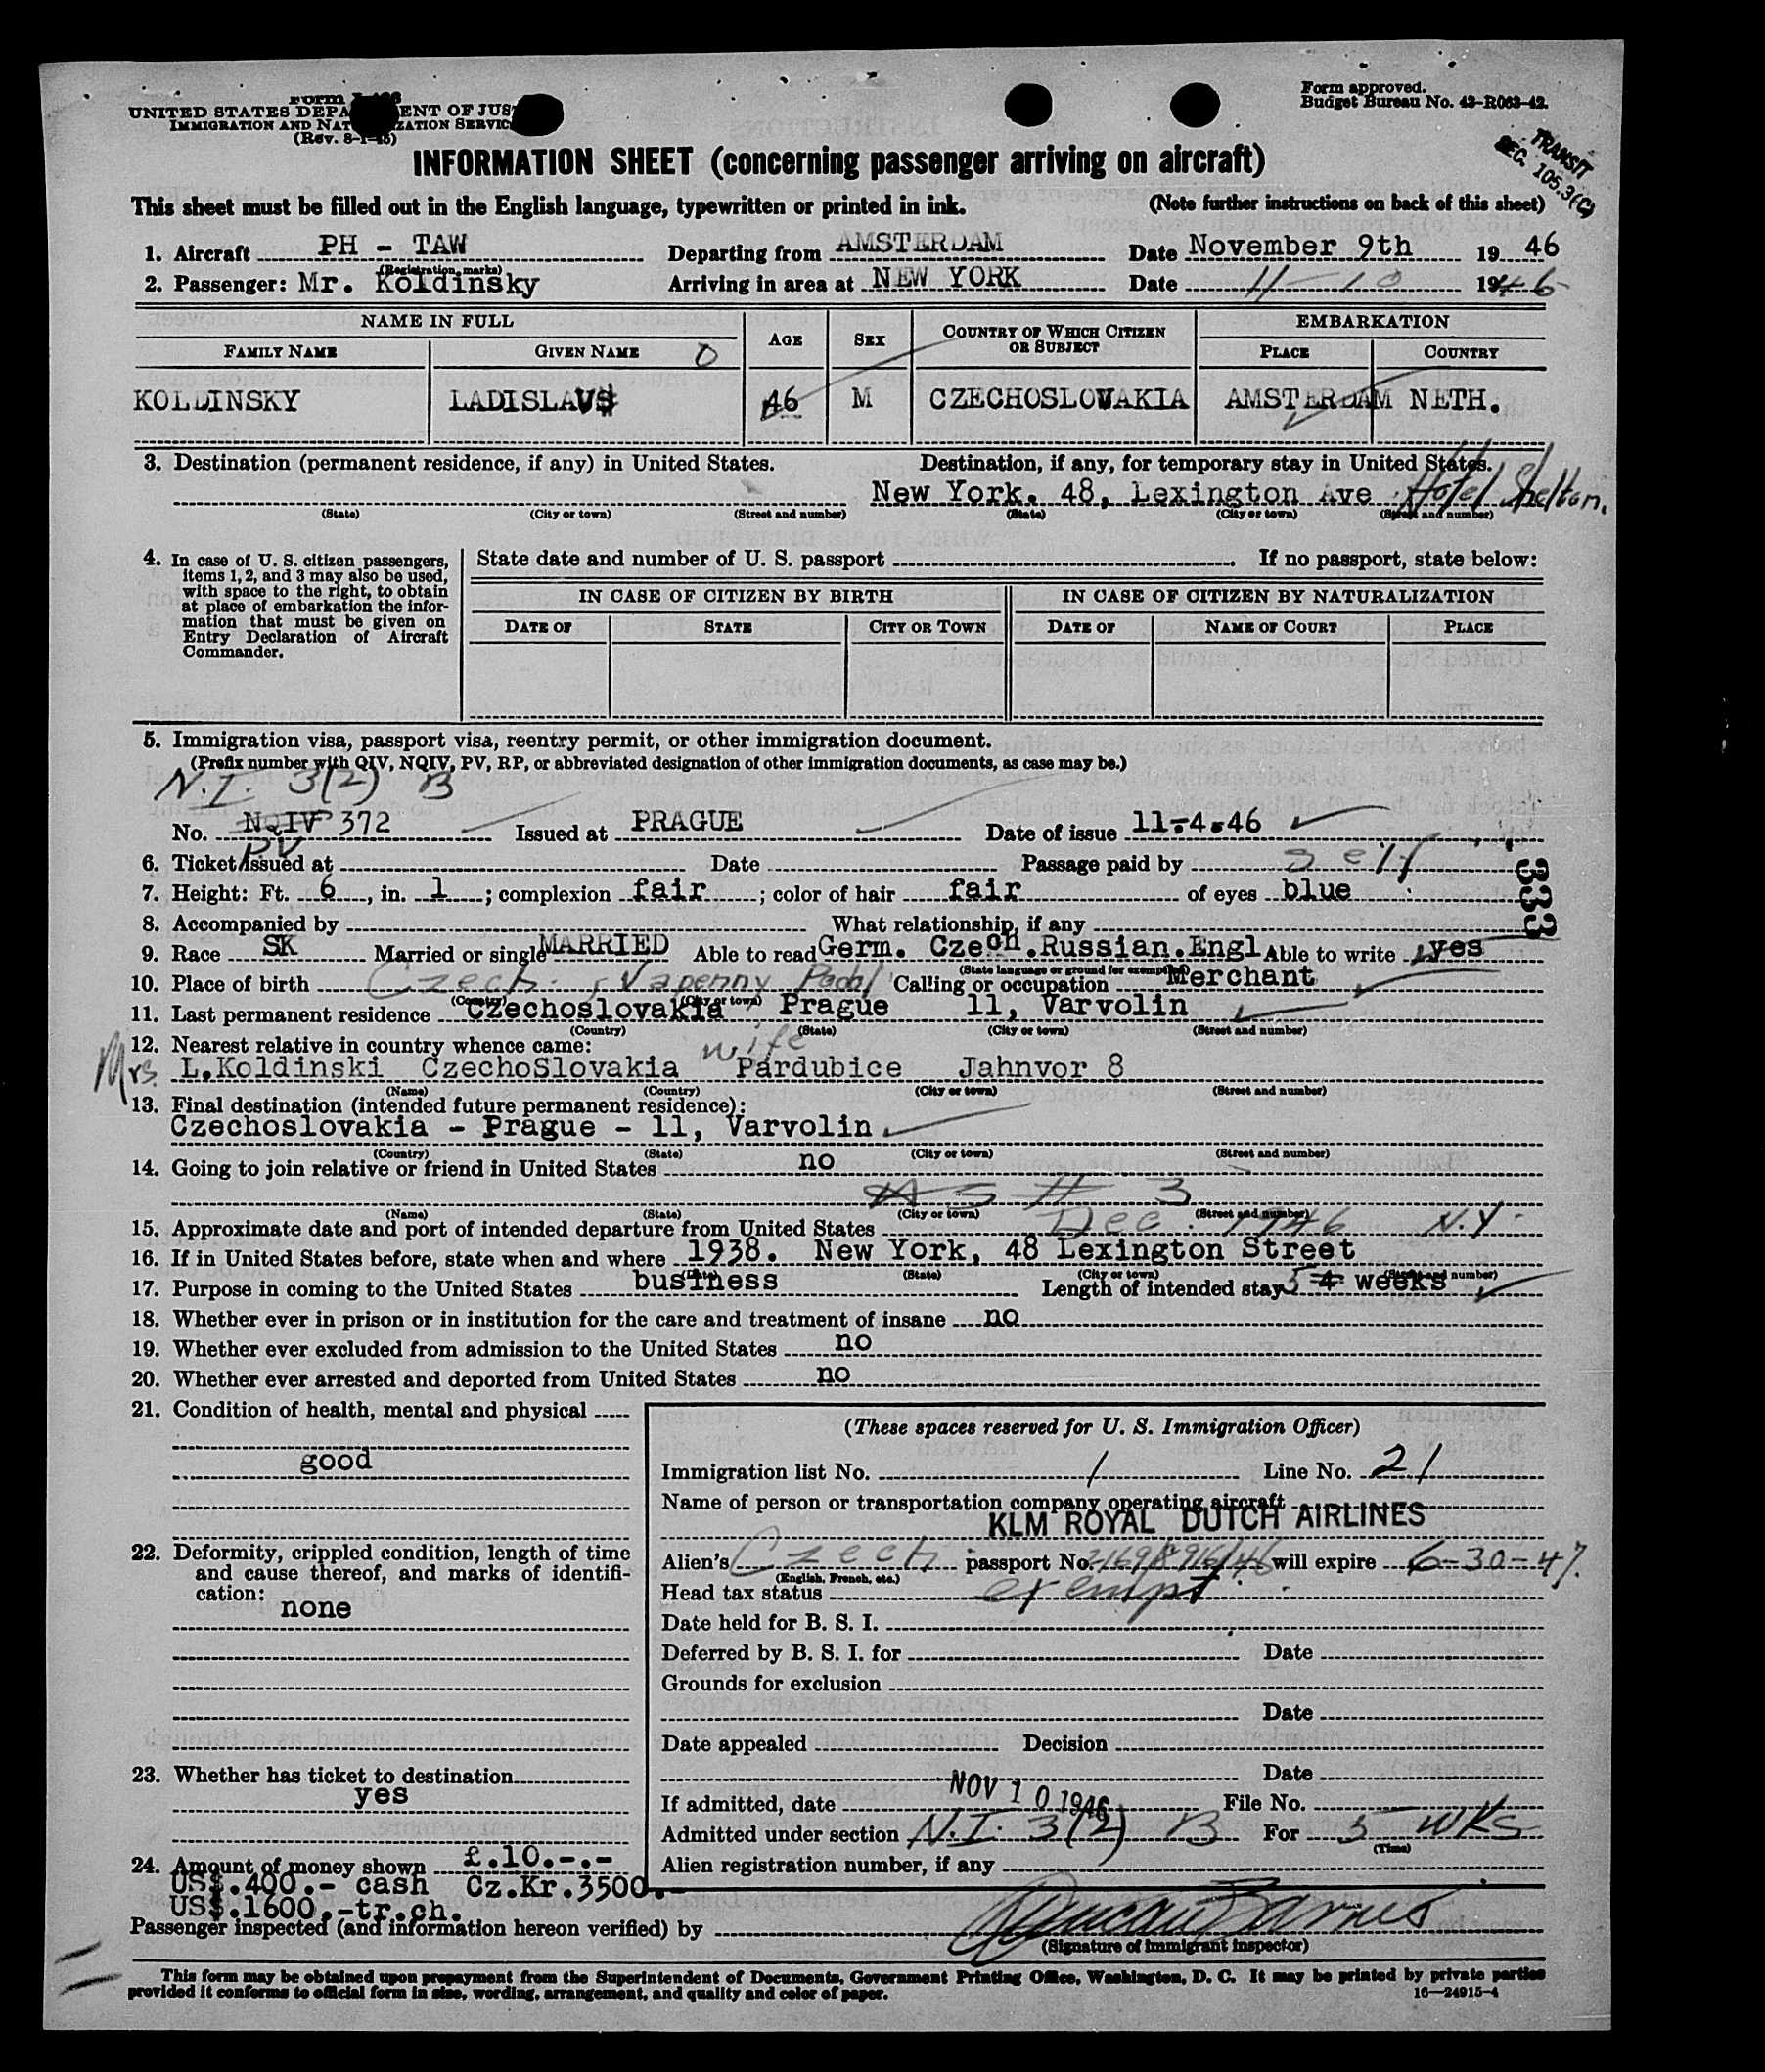 Form I-466
UNITED STATES DEPARTMENT OF JUSTICE
IMMIGRATION AND NATURALIZATION SERVICE
(Rev. 8-1-45)
Form approved.
Budget Bureau No. 43-R063-42.
TRANSIT
SEC. 105.3(C)
INFORMATION SHEET (concerning passenger arriving on aircraft)
This sheet must be filled out in the English language, typewritten or printed in ink. (Note further instructions on back of this sheet)
1. Aircraft PH - TAW Departing from AMSTERDAM Date November 9th 19 46
(Registration marks)
2. Passenger: Mr. Koldinsky Arriving in area at NEW YORK Date 11-10 1946
NAME IN FULL AGE SEX COUNTRY OF WHICH CITIZEN OR SUBJECT EMBARKATION
FAMILY NAME GIVEN NAME PLACE COUNTRY
KOLDINSKY LADISLAVS 46 M CZECHOSLOVAKIA AMSTERDAM NETH.
3. Destination (permanent residence, if any) in United States. Destination, if any, for temporary stay in United States.
New York. 48, Lexington Ave Hotel Shelton.
(State) (City or town) (Street and number) (State) (City or town) (Street and number)
4. In case of U. S. citizen passengers, items 1, 2, and 3 may also be used, with space to the right, to obtain at place of embarkation the information that must be given on Entry Declaration of Aircraft Commander.
State date and number of U. S. passport If no passport, state below:
IN CASE OF CITIZEN BY BIRTH IN CASE OF CITIZEN BY NATURALIZATION
DATE OF STATE CITY OR TOWN DATE OF NAME OF COURT PLACE
5. Immigration visa, passport visa, reentry permit, or other immigration document.
(Prefix number with QIV, NQIV, PV, RP, or abbreviated designation of other immigration documents, as case may be.)
N.I. 3(2) B
No. NQIV 372 Issued at PRAGUE Date of issue 11.4.46
PV
6. Ticket issued at Date Passage paid by self
333
7. Height: Ft. 6, in. 1; complexion fair; color of hair fair of eyes blue
8. Accompanied by What relationship, if any
9. Race SK Married or single MARRIED Able to read Germ. Czech.Russian.Engl Able to write yes
(State language or ground for exemption)
10. Place of birth Czech. Vapenny Podol Calling or occupation Merchant
(Country) (City or town)
11. Last permanent residence Czechoslovakia Prague 11, Varvolin
(Country) (State) (City or town) (Street and number)
12. Nearest relative in country whence came:
wife
Mrs. L.Koldinski CzechoSlovakia Pardubice Jahnvor 8
(Name) (Country) (City or town) (Street and number)
13. Final destination (intended future permanent residence):
Czechoslovakia - Prague - 11, Varvolin
(Country) (State) (City or town) (Street and number)
14. Going to join relative or friend in United States no
AS # 3
(Name) (State) (City or town) (Street and number)
15. Approximate date and port of intended departure from United States Dec. 1946 N.Y.
16. If in United States before, state when and where 1938. New York, 48 Lexington Street
(Date) (State) (City or town) (Street and number)
17. Purpose in coming to the United States business Length of intended stay 5 4 weeks
18. Whether ever in prison or in institution for the care and treatment of insane no
19. Whether ever excluded from admission to the United States no
20. Whether ever arrested and deported from United States no
21. Condition of health, mental and physical
good
22. Deformity, crippled condition, length of time and cause thereof, and marks of identification:
none
23. Whether has ticket to destination
yes
24. Amount of money shown £.10.-.-
US$.400.- cash Cz.Kr.3500.-
US$.1600.-tr.ch.
(These spaces reserved for U. S. Immigration Officer)
Immigration list No. 1 Line No. 21
Name of person or transportation company operating aircraft
KLM ROYAL DUTCH AIRLINES
Alien's Czech passport No. will expire 6-30-47.
(English, French, etc.)
Head tax status exempt
Date held for B. S. I.
Deferred by B. S. I. for Date
Grounds for exclusion
Date
Date appealed Decision
Date
If admitted, date NOV 10 1946 File No.
Admitted under section N.I. 3(2) B For 5 WKS
(Time)
Alien registration number, if any
Passenger inspected (and information hereon verified) by
(Signature of immigrant inspector)
This form may be obtained upon prepayment from the Superintendent of Documents, Government Printing Office, Washington, D. C. It may be printed by private parties
provided it conforms to official form in size, wording, arrangement, and quality and color of paper. 16—24915-4